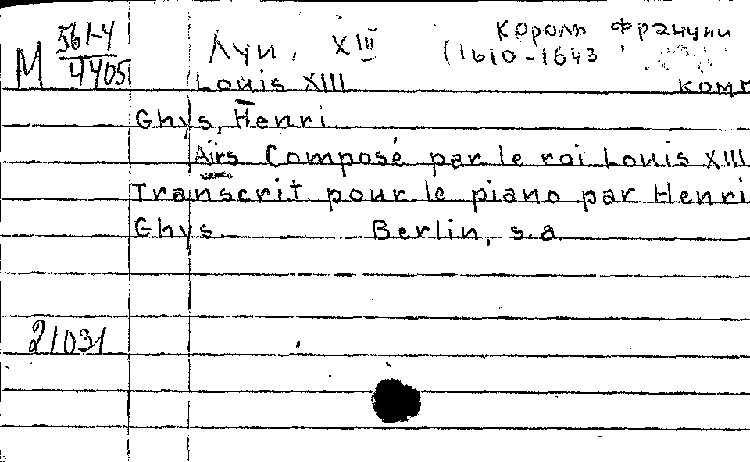 Король Франции
М 561-4 Луи, XIII (1610-1643
4405
Louis XIII комп
Ghys, Henri
Airs Composé par le roi Louis XIII
Transcrit pour le piano par Henri
Ghys. Berlin, s.a
21031